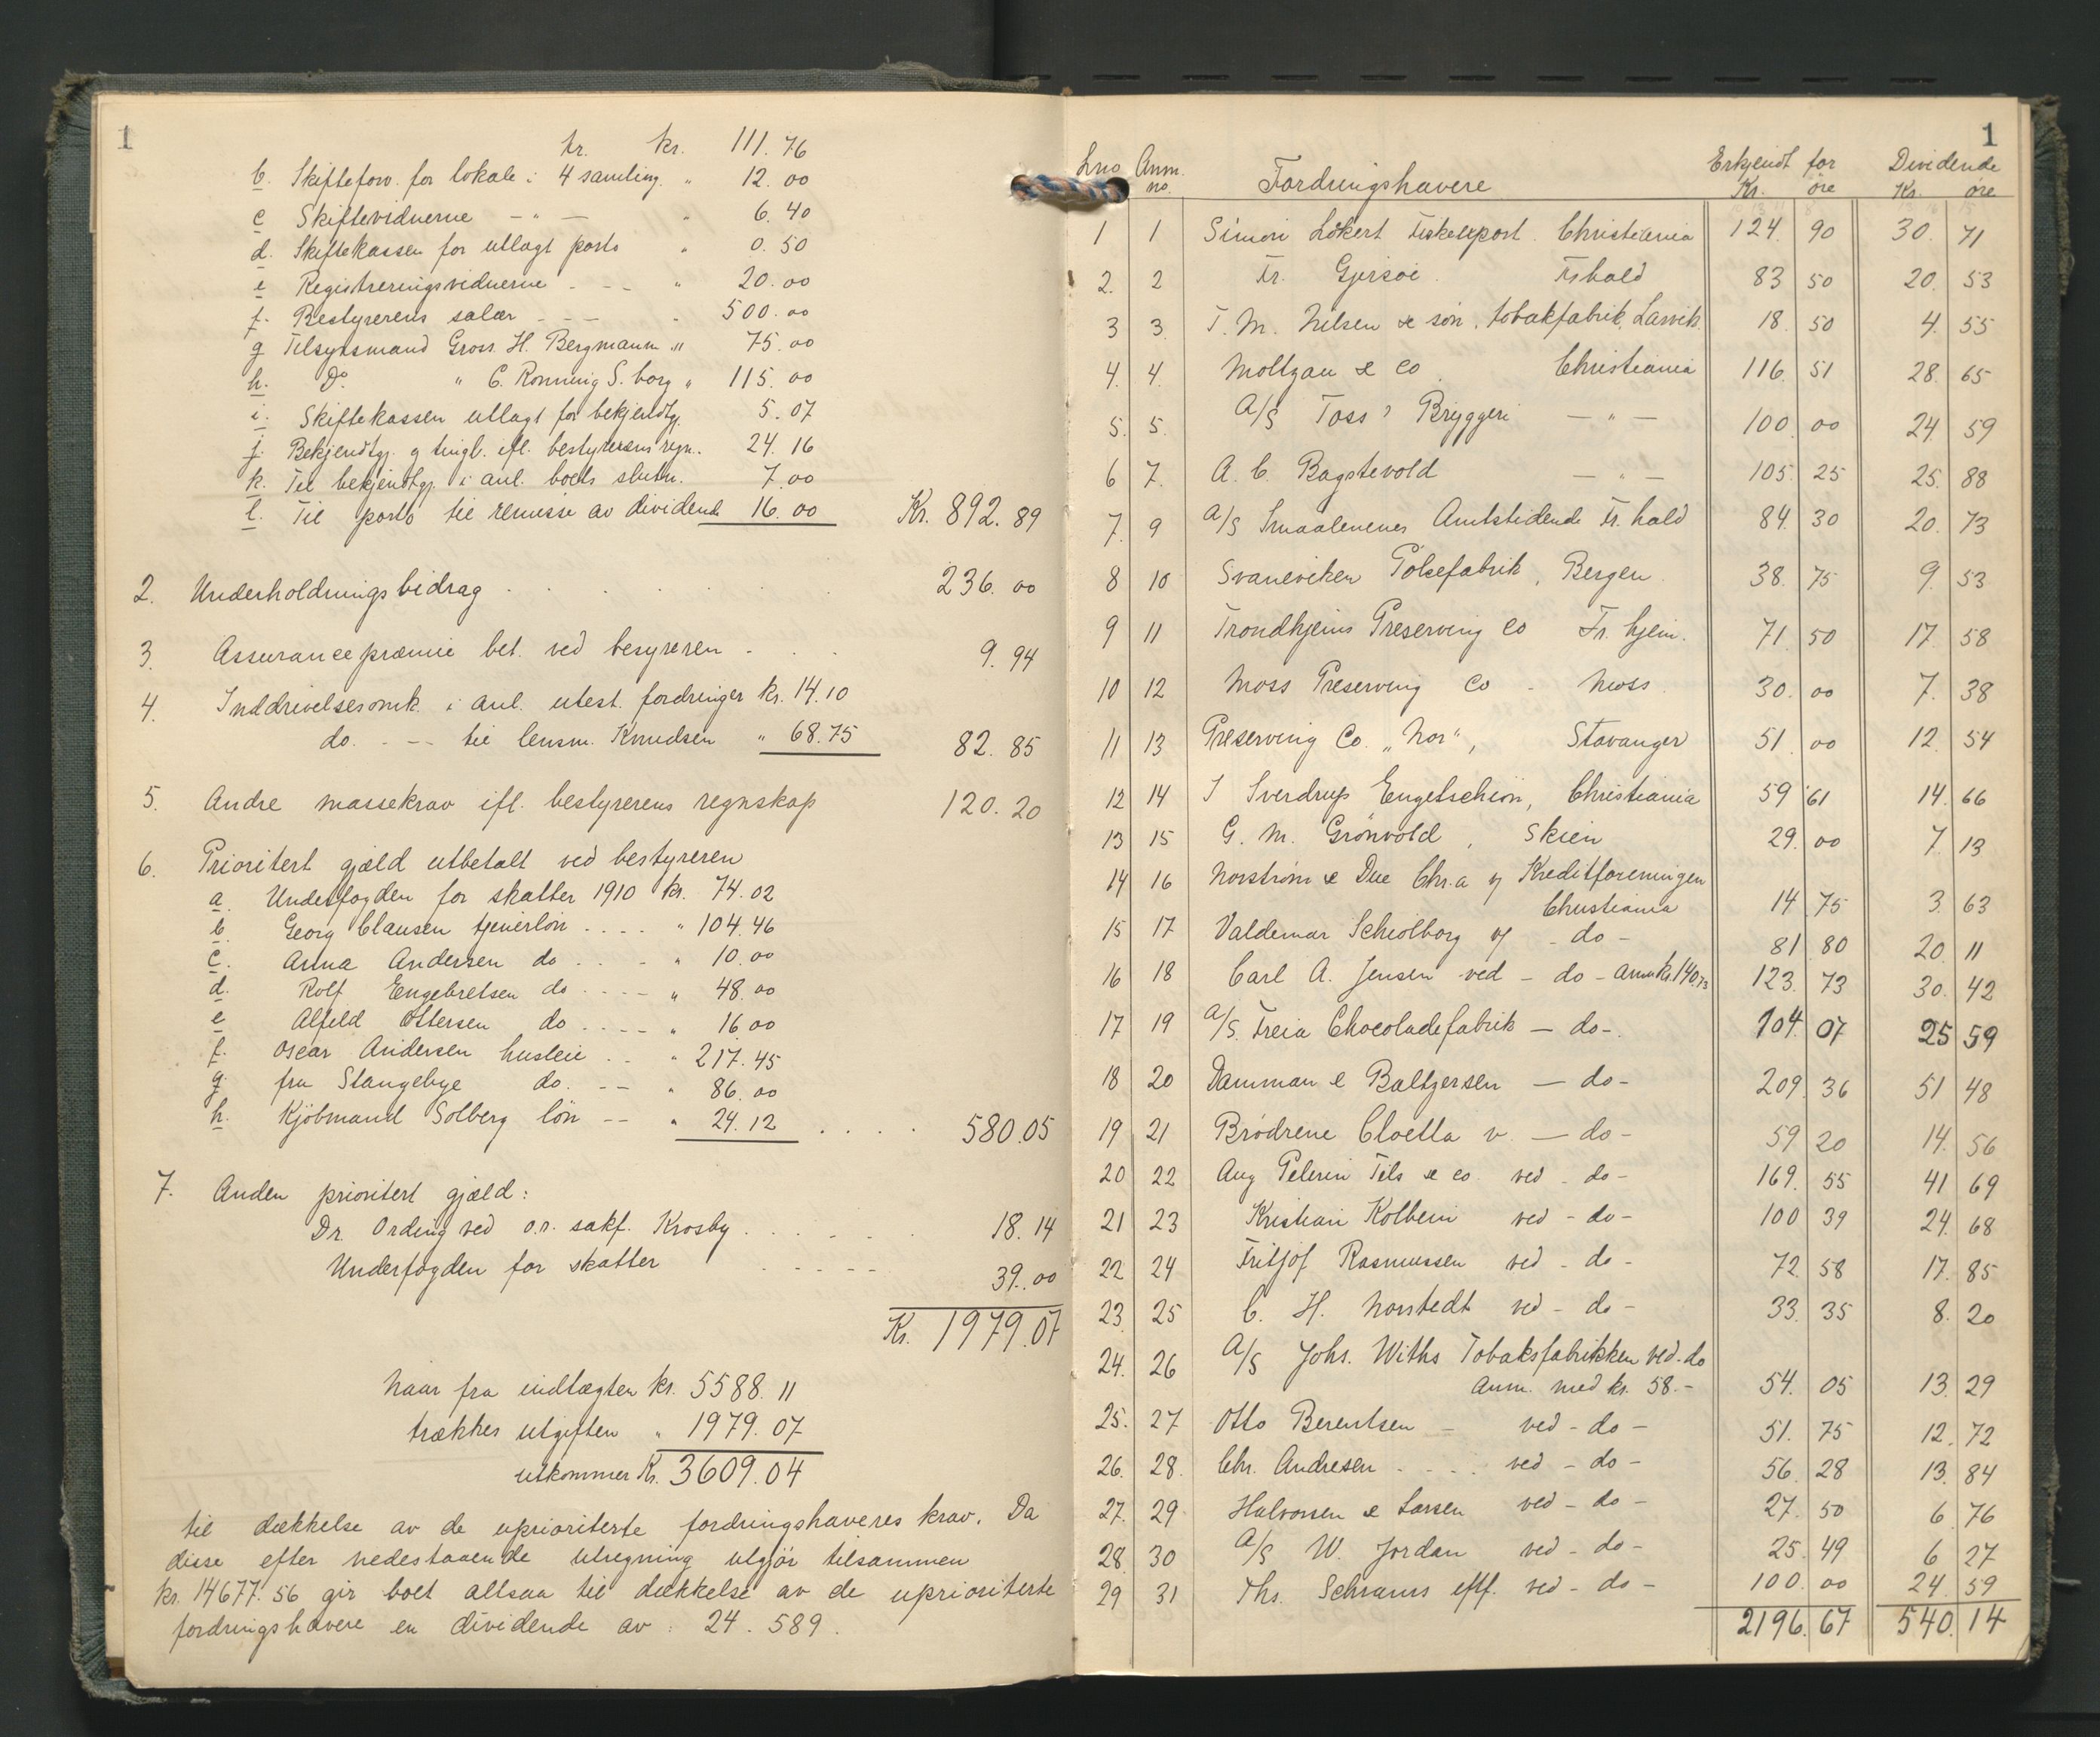 1
tr. kr. 111.76
b. Skifteforv. for lokale i 4 samling. " 12.00
c Skiftevidnerne - " - " 6.40
d. Skiftekassen for utlagt porto " 0.50
e Registreringsvidnerne - - - " 20.00
f. Bestyrerens salær - - - " 500.00
g Tilsynsmand Gross. H. Bergmann " 75.00
h. Do. " C. Ronning S.borg " 115.00
i. Skiftekassen utlagt for bekjendtg. 5.07
j. Bekjendtgj. og tingl. ifl. bestyrerens regn. 24.16
k. Til bekjendtgj. i anl. boets slutn. 7.00
l. Til porto til remisse av dividende 16.00 Kr. 892.89
2. Underholdningsbidrag . . . . . . 236.00
3. Assurancepræmie bet. ved besyreren . . . 9.94
4. Inddrivelsesomk. i anl. utest. fordringer kr. 14.10
do. - - til lensm. Knudsen " 68.75 82.85
5. Andre massekrav ifl. bestyrerens regnskap 120.20
6. Prioritert gjæld utbetalt ved bestyreren
a. Underfogden for skatter 1910 kr. 74.02
b. Georg Clausen tjenerlön . . . . " 104.46
c. Anna Andersen do . . . " 10.00
d. Rolf Engebretsen do . . . . " 48.00
e Alfeld Ottersen do . . . . " 16 00
f. Oscar Andersen husleie . . " 217.45
g. fru Stangebye do. - - " 86.00
h. Kjöbmand Solberg lön - - " 24.12 . . . . 580.05
7. Anden prioritert gjæld:
Dr. Ording ved o.r. sakf. Krosby . . . . . . 18.14
Underfogden for skatter - - - - - 39.00
Kr. 1979.07
Naar fra indtægten kr. 5588.11
trækkes utgiften " 1979.07
utkommer Kr. 3609.04
til dækkelse av de uprioriterte fordringshaveres krav. Da
disse efter nedestaaende utregning utgjör tilsammen
kr. 14677.56 gir boet altsaa til dækkelse av de uprioriterte
fordringshavere en dividende av : 24.589.
1
Lno Anm. no. Fordringshavere Erkjendt for Kr. öre Dividende Kr. öre
1 1 Simon Lökert Fiskeexport Christiania 124.90 30.71
2. 2 Fr. Gjersöe Frhald 83 50 20.53
3 3. T. M. Nilsen & sön, tobakfabrik, Larvik. 18.50 4.55
4. 4. Moltzau & Co. Christiania 116.51 28.65
5. 5. A/S Toss' Bryggeri - " - 100.00 24.59
6 7. A. C. Bagstevold - " - 105.25 25.88
7. 9 A/S Smaalenenes Amtstidende Fr. hald 84.30 20.73
8 10 Svaneviken Pölsefabrik, Bergen 38.75 9.53
9 11 Trondhjems Preserving Co Tr. hjem. 71.50 17.58
10 12 Moss Preserving Co - Moss 30.00 7.38
11 13 Preserving Co. "Nor", Stavanger 51.00 12.54
12 14 J Sverdrup Engelschiön, Christiania 59.61 14.66
13 15 G. M. Grönvold, Skien 29.00 7 13
14 16 Norström & Due Chr.a v/ Kreditforeningen
Christiania 14 75 3.63
15 17 Valdemar Schiölborg v/ - do - 81 80 20 11
16 18 Carl A. Jensen ved - do - anm kr. 140.73 123.73 30.42
17 19 A/S. Freia Chocoladefabrik - do -. 104.07 25 59
18 20 Damman & Baltzersen - do - 209.36 51 48
19 21 Brödrene Cloetta v. - do - 59 20 14.56
20 22 Aug Pelerin Fils & co. ved - do - 169.55 41 69
21 23 Kristian Kolbein ved - do - 100 39 24.68
22 24 Fritjof Rasmussen ved - do - 72.58 17.85
23 25 C. H. Norstedt ved - do - 33.35 8.20
24. 26 A/S Johs. Withs Tobaksfabrikken ved - do
Anm. med kr. 58.- 54.05 13.29
25. 27 Otto Berentsen - ved - do - 51.75 12.72
26. 28. Chr. Andresen . - . . ved - do - 56.28 13.84
27. 29 Halvorsen & Larsen ved - do - 27.50 6.76
28 30 A/S W. Jordan ved - do - 25.49 6 27
29 31 Ths. Schrams eftf. ved - do - 100.00 24.59
2196.67 540.14